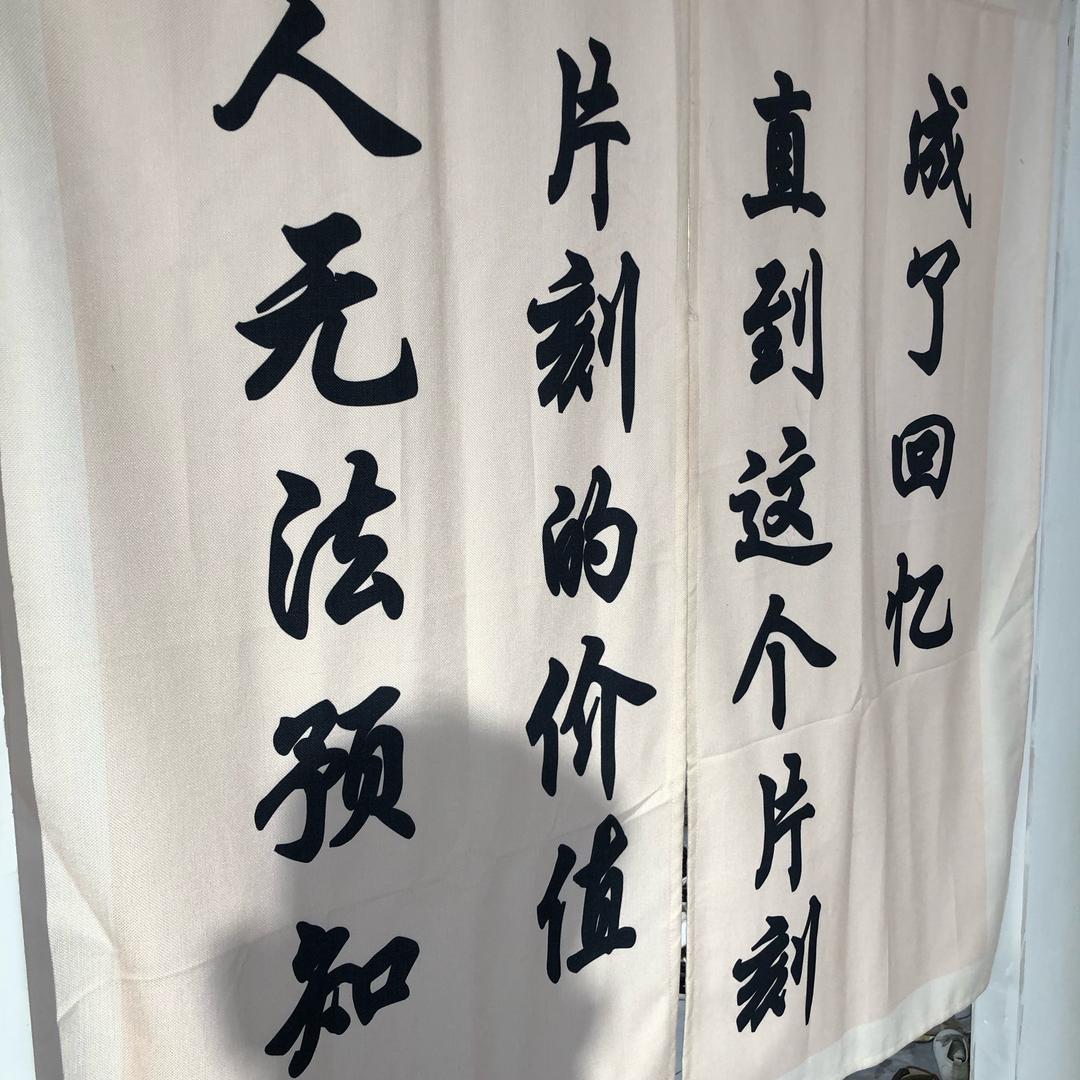 人无法预知
片刻的价值
直到这个片刻
成了回忆